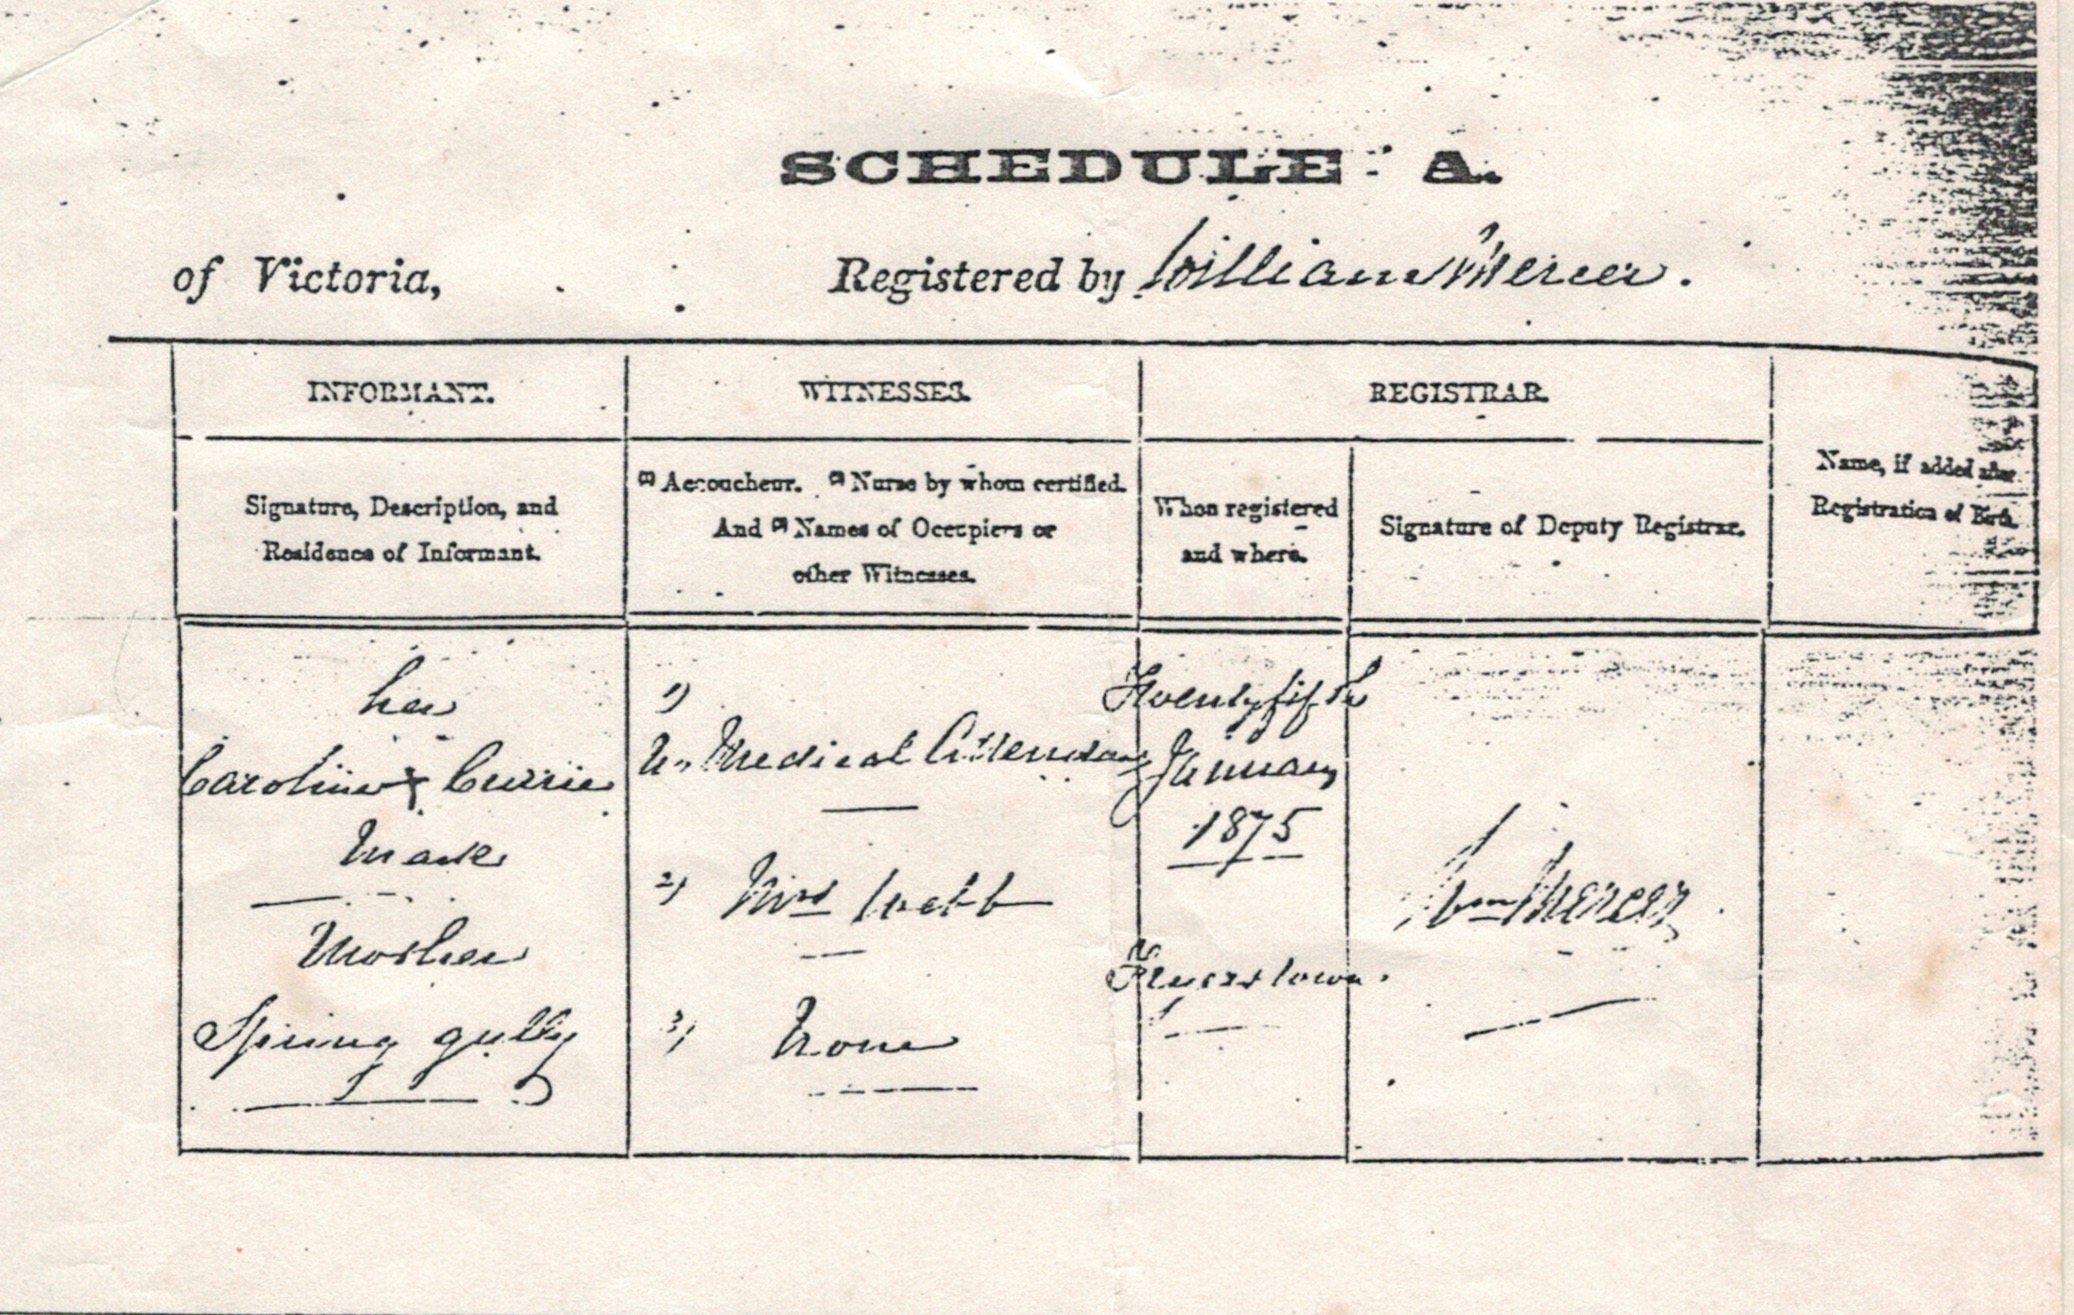 SCHEDULE A.
of Victoria, Registered by William Mercer.
INFORMANT. WITNESSES. REGISTRAR.
Signature, Description, and
Residence of Informant.
(1) Accoucheur. (2) Nurse by whom certified.
And (3) Names of Occupiers or
other Witnesses.
When registered
and where.
Signature of Deputy Registrar.
Name, if added after
Registration of Birth.
her
Caroline x Currie
Mark
Mother
Spring gully
1)
No Medical Attendant
2) Mrs Webb
3) None
Twenty fifth
January
1875
Fryerstown.
Wm Mercer